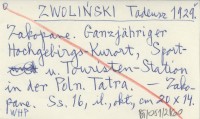 ZWOLIŃSKI Tadeusz 1929.
Zakopane. Ganzjähriger
Hochgebirgs-Kurort, Sport-
u. Touristen-Station
in der Poln. Tatra. — Zako-
pane. Ss. 16, il., okł., cm 20 x 14.
WHP